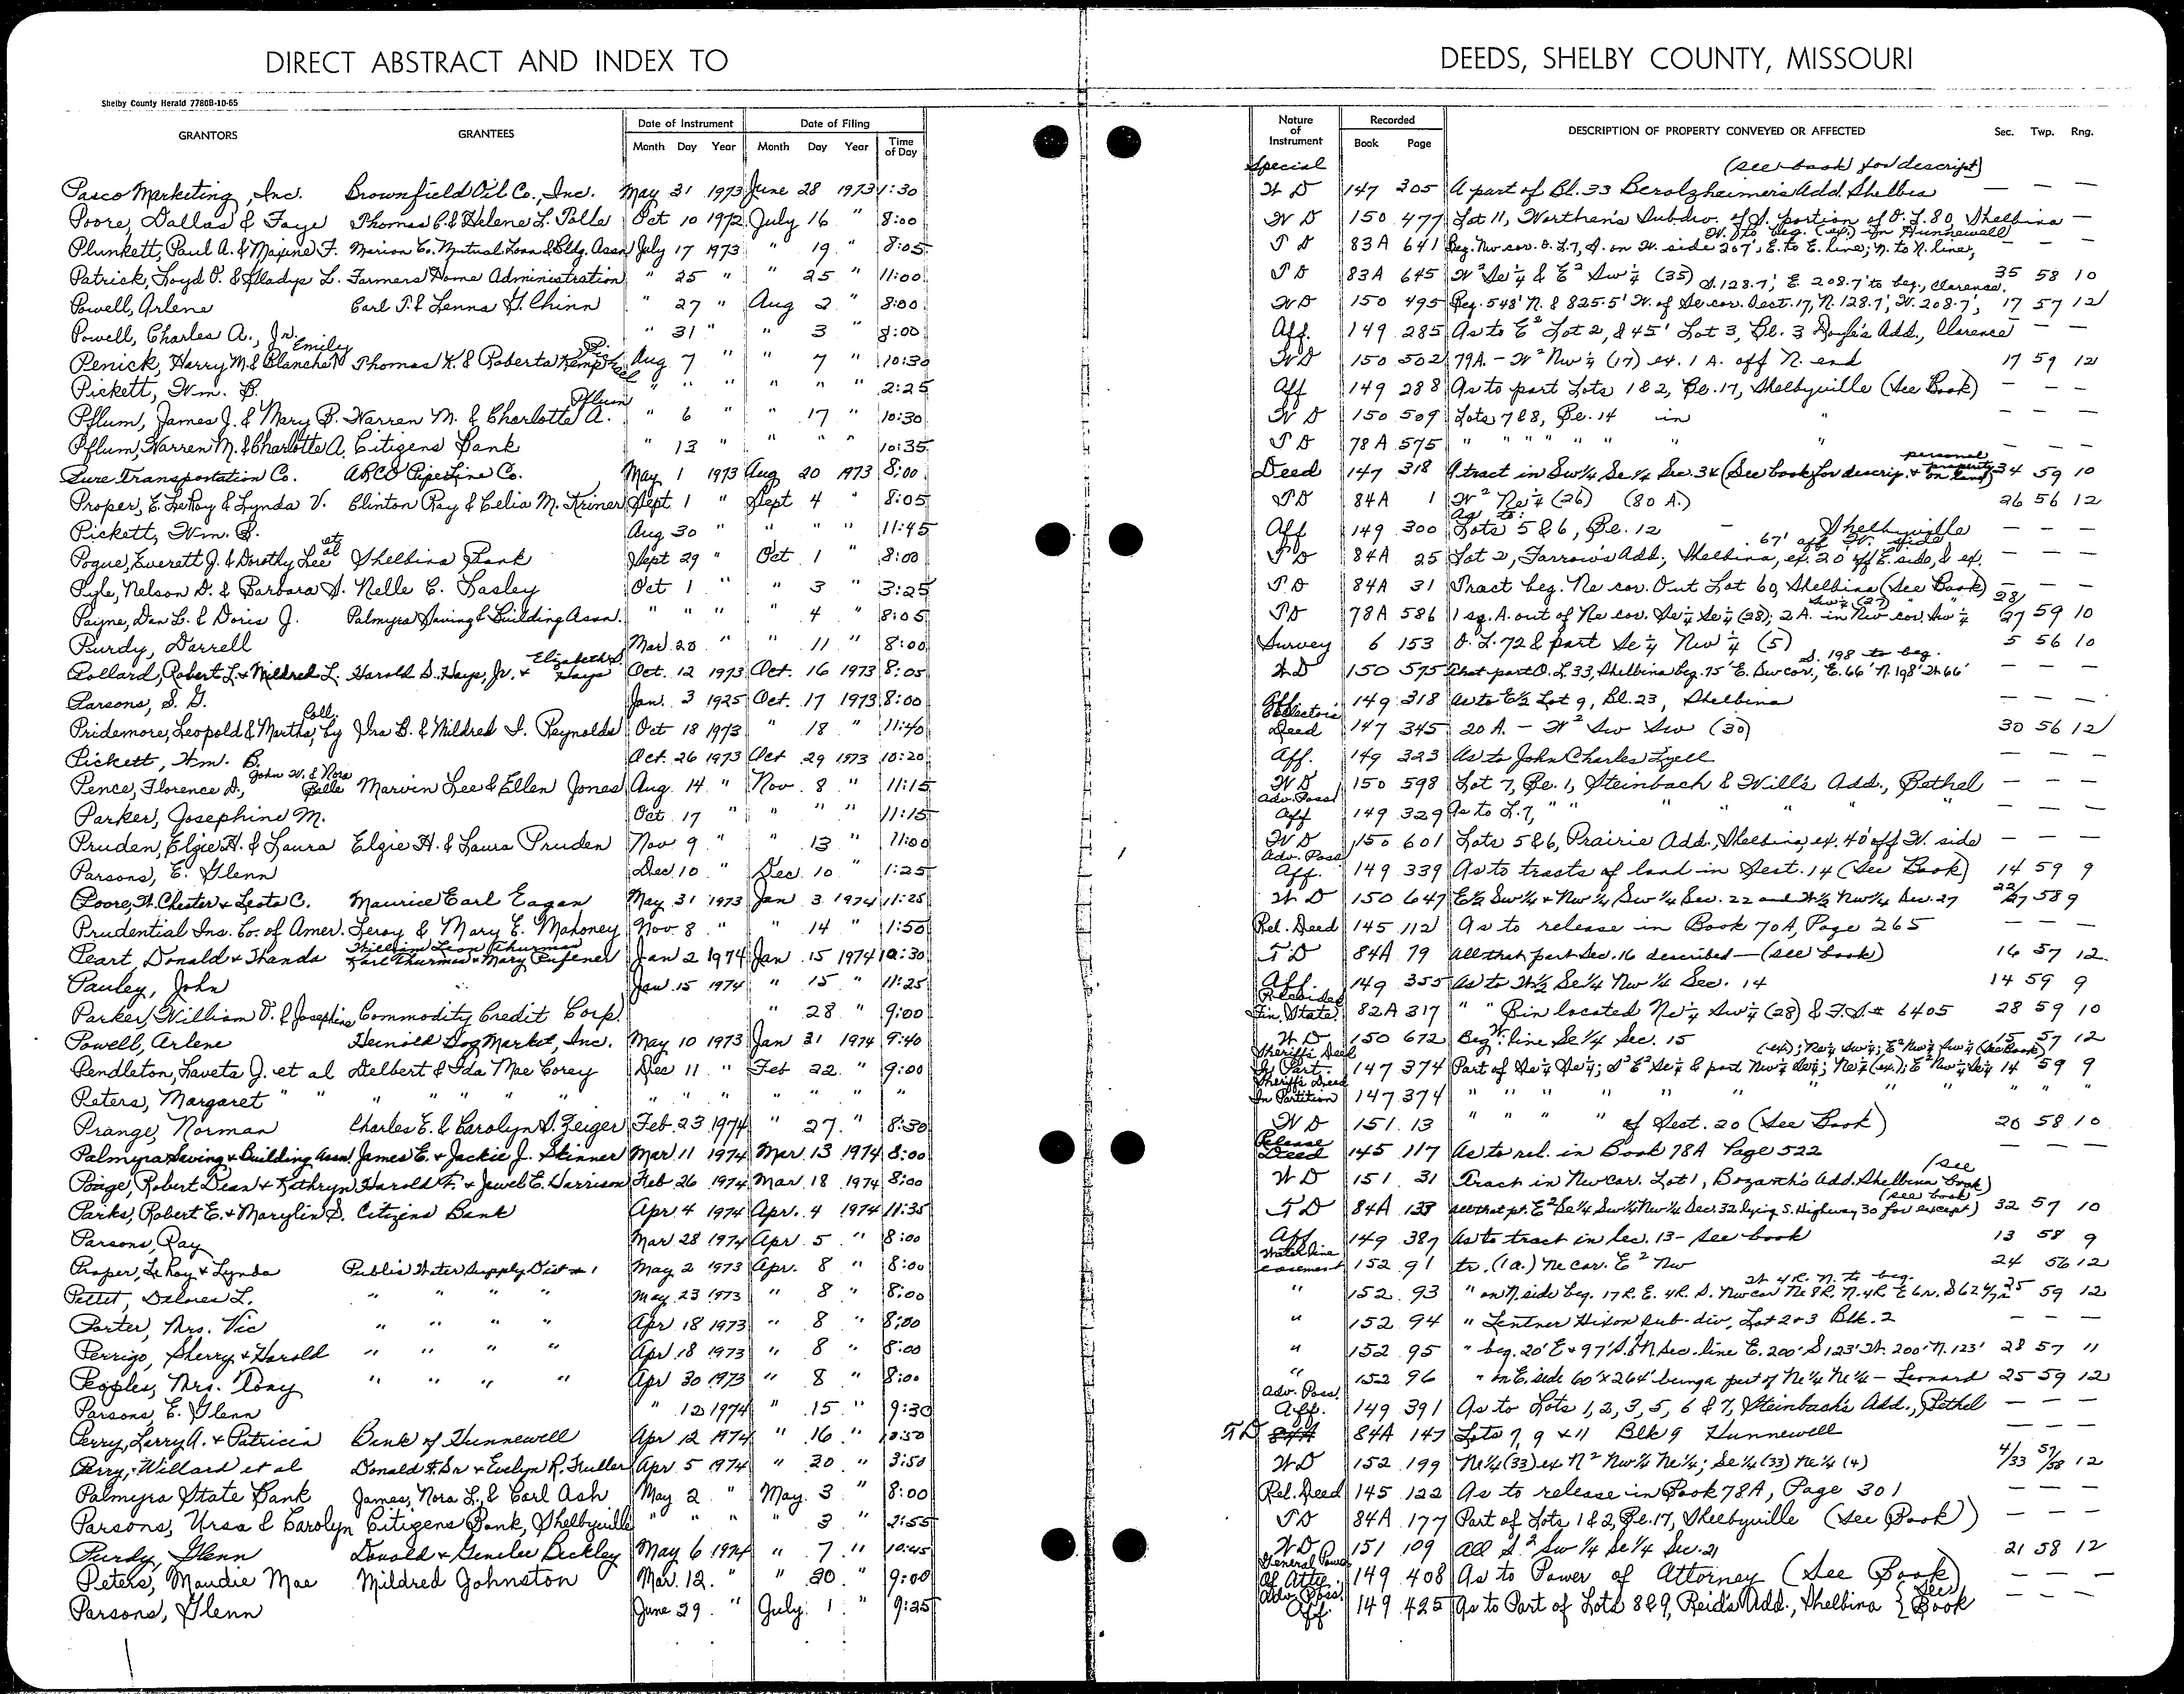 DIRECT ABSTRACT AND INDEX TO DEEDS, SHELBY COUNTY, MISSOURI
Shelby County Herald 7780B-10-65
GRANTORS GRANTEES Date of Instrument Date of Filing Time of Day Nature of Instrument Recorded DESCRIPTION OF PROPERTY CONVEYED OR AFFECTED Sec. Twp. Rng.
Month Day Year Month Day Year Book Page
Pasco Marketing, Inc. Brownfield Oil Co., Inc. May 31 1973 June 28 1973 1:30 Special W D 147 305 A part of Bl. 33 Berolzheimer's Add. Shelbina (see book for descript) — — —
Poore, Dallas & Faye Thomas C. & Helene L. Polle Oct 10 1972 July 16 " 8:00 W D 150 477 Lot 11, Worthen's Subdiv. of S. portion of O. L. 80, Shelbina —
Plunkett, Paul A. & Maxine F. Marion C. Mutual Loan & Bldg. Assn July 17 1973 " 19 " 8:05 T D 83A 641 Beg. Nw cor. O. L. 7, S. on W. side 207', E. to E. line; N. to N. line, W. to beg. (ex.) in Hunnewell — — —
Patrick, Loyd O. & Gladys L. Farmers Home Administration " 25 " " 25 " 11:00 T D 83A 645 W² Se¼ & E² Sw¼ (35) 35 58 10
Powell, Arlene Carl T. & Lenna G. Chinn " 27 " Aug 2 " 8:00 W D 150 495 Beg. 543' N. & 825.5' W. of Se cor. Sect. 17, N. 128.7', W. 208.7', S. 128.7', E. 208.7' to beg., Clarence 17 57 12
Powell, Charles A., Jr. " 31 " " 3 " 8:00 Aff. 149 285 As to E² Lot 2, & 45' Lot 3, Bl. 3 Doyle's Add., Clarence — —
Penick, Harry M. & Blanche Emily Thomas K. & Roberta Aug 7 " " 7 " 10:30 W D 150 502 79A. – W² Nw¼ (17) ex. 1 A. off N. end 17 59 12
Pickett, Wm. B. " " " " " " 2:25 Aff 149 288 As to part Lots 1 & 2, Bl. 17, Shelbyville (See Book) — — —
Pflum, James J. & Mary B. Warren M. & Charlotte A. Pflum " 6 " " 17 " 10:30 W D 150 509 Lots 7 & 8, Bl. 14 in " — — —
Pflum, Warren M. & Charlotte A. Citizens Bank " 13 " " " " 10:35 T D 78A 575 " " " " " " " " — — —
Pure Transportation Co. ARCO Pipe Line Co. May 1 1973 Aug 20 1973 8:00 Deed 147 318 A tract in Sw¼ Se¼ Sec. 34 (See book for descrip. & personal property on land) 34 59 10
Proper, E. LeRoy & Lynda V. Clinton Ray & Celia M. Kriner Sept 1 " Sept 4 " 8:05 T D 84A 1 W² Ne¼ (26) (80 A.) 26 56 12
Pickett, Wm. B. Aug 30 " " " " 11:45 Aff 149 300 As to: Lots 5 & 6, Bl. 12 – Shelbyville — — —
Pogue, Everett J. & Dorothy Lee et al Shelbina Bank Sept 29 " Oct 1 " 8:00 T D 84A 25 Lot 2, Farrow's Add., Shelbina, ex. 20' off E. side, & ex. 67' off W. side — — —
Pyle, Nelson D. & Barbara S. Nelle C. Lasley Oct 1 " " 3 " 3:25 T D 84A 31 Tract beg. Ne cor. Out Lot 60, Shelbina (See Book) — — —
Payne, Dan L. & Doris J. Palmyra Saving & Building Assn. " " " " 4 " 8:05 T D 78A 586 1 sq. A. out of Ne cor. Se¼ Se¼ (28); 2 A. in Nw cor. Sw¼ Sw¼ (27) 28/27 59 10
Purdy, Darrell Mar. 20 " " 11 " 8:00 Survey 6 153 O. L. 72 & part Se¼ Nw¼ (5) 5 56 10
Pollard, Robert L. & Mildred L. Harold S. Hays, Jr. & Elizabeth S. Hays Oct. 12 1973 Oct. 16 1973 8:05 W D 150 575 That part O. L. 33, Shelbina beg. 75' E. Sw cor., E. 66' N. 198' W. 66' S. 198 to beg. — — —
Parsons, S. G. Jan. 3 1925 Oct. 17 1973 8:00 Aff. 149 318 As to E½ Lot 9, Bl. 23, Shelbina — — —
Pridemore, Leopold & Martha, by Coll. Ira B. & Mildred I. Reynolds Oct 18 1973 " 18 " 11:40 Collector's Deed 147 345 20 A. – W² Sw Sw (30) 30 56 12
Pickett, Wm. B. Oct. 26 1973 Oct 29 1973 10:20 Aff. 149 323 As to John Charles Lyell — — —
Pence, Florence D., John W. & Nora Belle Marvin Lee & Ellen Jones Aug. 14 " Nov. 8 " 11:15 W D 150 598 Lot 7, Bl. 1, Steinbach & Will's Add., Bethel — — —
Parker, Josephine M. Oct 17 " " " " 11:15 Adv. Poss. Aff 149 329 As to L. 7, " " " " " " — — —
Pruden, Elgie H. & Laura Elgie H. & Laura Pruden Nov 9 " " 13 " 11:00 W D 150 601 Lots 5 & 6, Prairie Add., Shelbina, ex. 40' off W. side — — —
Parsons, E. Glenn Dec. 10 " Dec. 10 " 1:25 Adv. Poss. Aff. 149 339 As to tracts of land in Sect. 14 (See Book) 14 59 9
Poore, W. Chester & Leota C. Maurice Earl Eagan May 31 1973 Jan 3 1974 11:25 W D 150 647 E½ Sw¼ & Nw¼ Sw¼ Sec. 22 and W½ Nw¼ Sec. 27 22/27 58 9
Prudential Ins. Co. of Amer. Leroy & Mary E. Mahoney Nov 8 " " 14 " 1:50 Rel. Deed 145 112 As to release in Book 70A, Page 265 — — —
Peart, Donald & Wanda William Leon Thurman Karl Thurman & Mary Pufener Jan 2 1974 Jan. 15 1974 10:30 T D 84A 79 All that part Sec. 16 described – (see book) 16 57 12
Pauley, John Jan 15 1974 " 15 " 11:25 Aff. 149 355 As to W½ Se¼ Nw¼ Sec. 14 14 59 9
Parker, William O. & Josephine Commodity Credit Corp. " 28 " 9:00 Fin. State. 82A 317 " " Bin located Ne¼ Sw¼ (28) & F. S. # 6405 28 59 10
Powell, Arlene Heinold Hog Market, Inc. May 10 1973 Jan 31 1974 9:40 W D 150 672 Beg. W. line Se¼ Sec. 15 15 57 12
Pendleton, Laveta J. et al Delbert & Ida Mae Corey Dec 11 " Feb 22 " 9:00 Sheriff's Deed In Part. 147 374 Part of Se¼ Se¼; S² E² Se¼ & part Nw¼ Se¼; Ne¼ (ex.); E² Nw¼ Se¼ (ex.); Ne¼ Sw¼; E² Nw¼ Sw¼ (See Book) 14 59 9
Peters, Margaret " " " " " " " " " " " " " Sheriff's Deed In Partition 147 374 " " " " " " " " " "
Prange, Norman Charles E. & Carolyn S. Zeiger Feb. 23 1974 " 27 " 8:30 W D 151 13 " " " " of Sect. 20 (See Book) 20 58 10
Palmyra Saving & Building Assn. James E. & Jackie J. Skinner Mar 11 1974 Mar. 13 1974 8:00 Release Deed 145 117 As to rel. in Book 78A Page 522 — — —
Poage, Robert Dean & Kathryn Harold F. & Jewel E. Harrison Feb 26 1974 Mar. 18 1974 8:00 W D 151 31 Tract in Nw cor. Lot 1, Bozarth's Add. Shelbina (see book)
Parks, Robert E. & Marylin S. Citizens Bank Apr 4 1974 Apr. 4 1974 11:35 T D 84A 133 All that pt. E² Se¼ Sw¼ Nw¼ Sec. 32 lying S. Highway 30 (see book for except) 32 57 10
Parsons, Ray Mar 28 1974 Apr. 5 " 8:00 Aff 149 387 As to tract in Sec. 13 – See book 13 58 9
Proper, LeRoy & Lynda Public Water Supply Dist # 1 May 2 1973 Apr. 8 " 8:00 Water line easement 152 91 tr. (1 a.) Ne cor. E² Nw 24 56 12
Pettit, Delores L. " " " " May 23 1973 " 8 " 8:00 " 152 93 " on N. side beg. 17 R. E. 4R. S. Nw cor W. 4R. N. to beg. 25 59 12
Porter, Mrs. Vic " " " " Apr 18 1973 " 8 " 8:00 " 152 94 " Lentner Hixon Sub-div. Lot 2 & 3 Blk. 2 — — —
Perrigo, Sherry & Harold " " " " Apr 18 1973 " 8 " 8:00 " 152 95 " beg. 20' E & 97' S. of N. Sec. line E. 200' S 123' W. 200' N. 123' 28 57 11
Peoples, Mrs. Tony " " " " Apr 30 1973 " 8 " 8:00 " 152 96 " on E. side 60' x 264' being a part of Ne¼ Ne¼ – Leonard 25 59 12
Parsons, E. Glenn " 12 1974 " 15 " 9:30 Adv. Poss. Aff. 149 391 As to Lots 1, 2, 3, 5, 6 & 7, Steinbach's Add., Bethel — — —
Perry, Larry A. & Patricia Bank of Hunnewell Apr 12 1974 " 16 " 10:50 T D 84A 147 Lots 7, 9 & 11 Blk 9 Hunnewell — — —
Perry, Willard et al Donald F. Sr & Evelyn R. Fuller Apr 5 1974 " 30 " 3:50 W D 152 199 Ne¼ (33) ex N² Nw¼ Ne¼; Se¼ (33) Ne¼ (4) 4/33 57/58 12
Palmyra State Bank James, Nora L., & Carl Ash May 2 " May 3 " 8:00 Rel. Deed 145 122 As to release in Book 78A, Page 301 — — —
Parsons, Ursa & Carolyn Citizens Bank, Shelbyville " " " " 3 " 2:55 T D 84A 177 Part of Lots 1 & 2, Bl. 17, Shelbyville (See Book) — — —
Purdy, Glenn Donald & Genelee Beckley May 6 1974 " 7 " 10:45 W D 151 109 All S² Sw¼ Se¼ Sec. 21 21 58 12
Peters, Maudie Mae Mildred Johnston Mar. 12. " " 20 " 9:00 General Power of Atty. 149 408 As to Power of Attorney (See Book) — — —
Parsons, Glenn June 29 " July 1 " 9:25 Adv. Poss. Aff. 149 425 As to Part of Lots 8 & 9, Reid's Add., Shelbina {See Book — — —